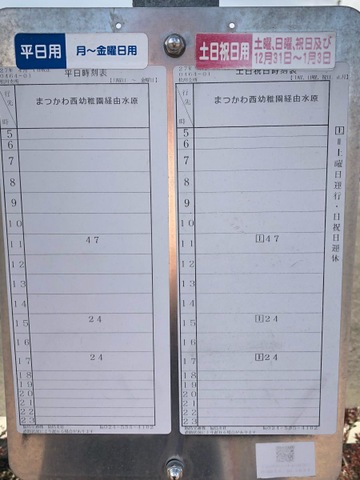 平日用 月～金曜日用
土日祝日用 土曜、日曜、祝日及び
12月31日～1月3日
平日時刻表
まつかわ西幼稚園経由水原
行先
時
5
6
7
8
9
10
11 47
12
13
14
15 24
16
17 24
18
19
20
21
22
23
土日祝日時刻表
まつかわ西幼稚園経由水原
行先
時
5
6
7
8
9
10
11 土47
12
13
14
15 土24
16
17 土24
18
19
20
21
22
23
土＝土曜日運行・日祝日運休